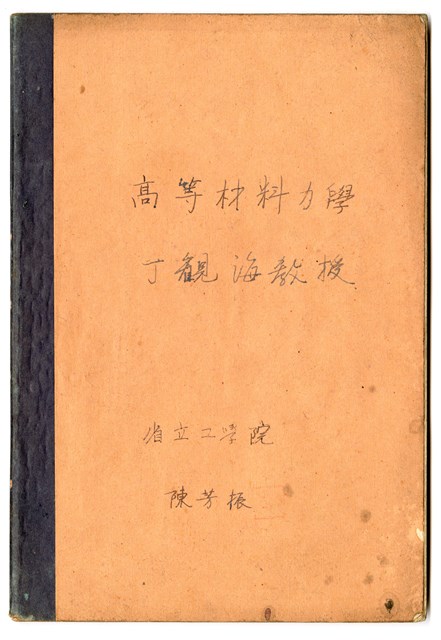 高等材料力學
丁觀海教授
省立工學院
陳芳振